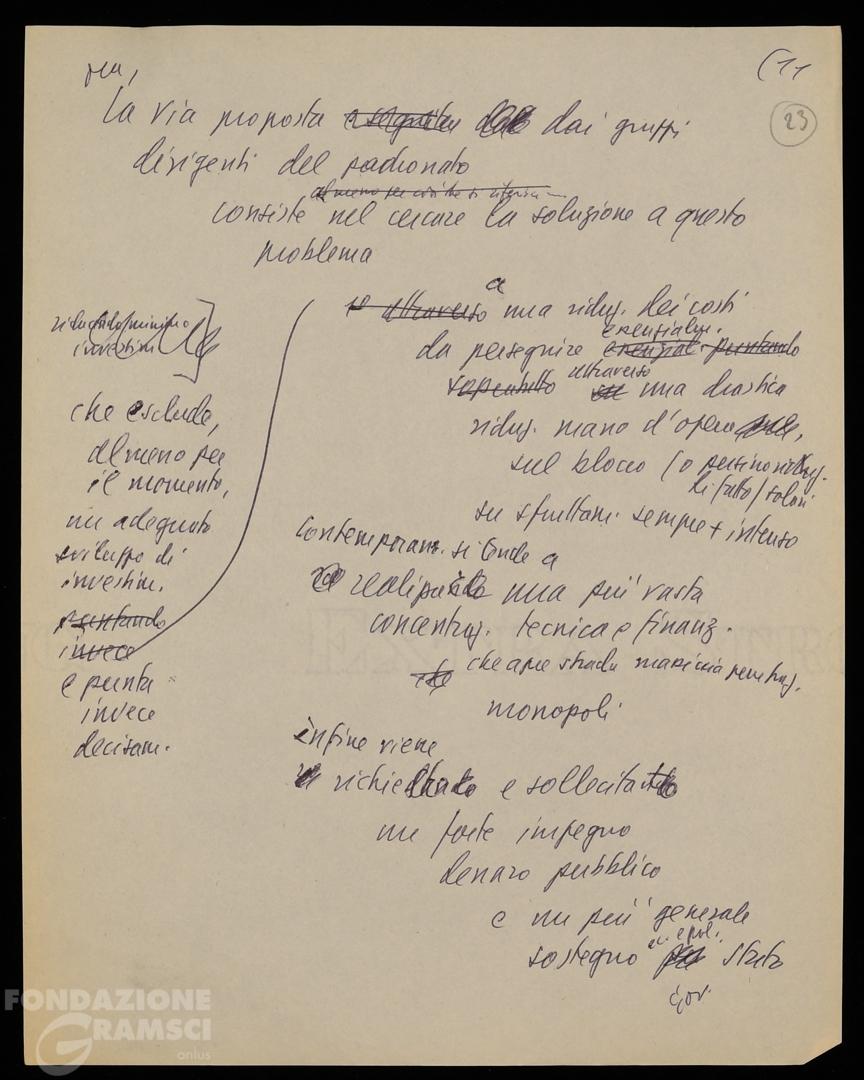 (11
23
La via proposta dai gruppi
dirigenti del padronato
almeno per
consiste nel cercare la soluzione a questo
problema
riducendo/minimo
investim
che esclude,
almeno per
il momento,
un adeguato
sviluppo di
investim.
puntando
invece
e punta
invece
decisam.
attraverso a una riduz. dei costi
essenzialm.
da perseguire essenzial. puntando
soprattutto attraverso su una drastica
riduz. mano d'opera,
sul blocco (o persino riduz.
di fatto) salari
su sfruttam. sempre + intenso
contemporan. si tende a
realizzare una più vasta
concentraz. tecnica e finanz.
che che apre strada massiccia penetraz.
monopoli
infine viene
richiesto e sollecitato
un forte impegno
denaro pubblico
e un più generale
ec. e pol.
sostegno Stato
gov.
FONDAZIONE
GRAMSCI
onlus